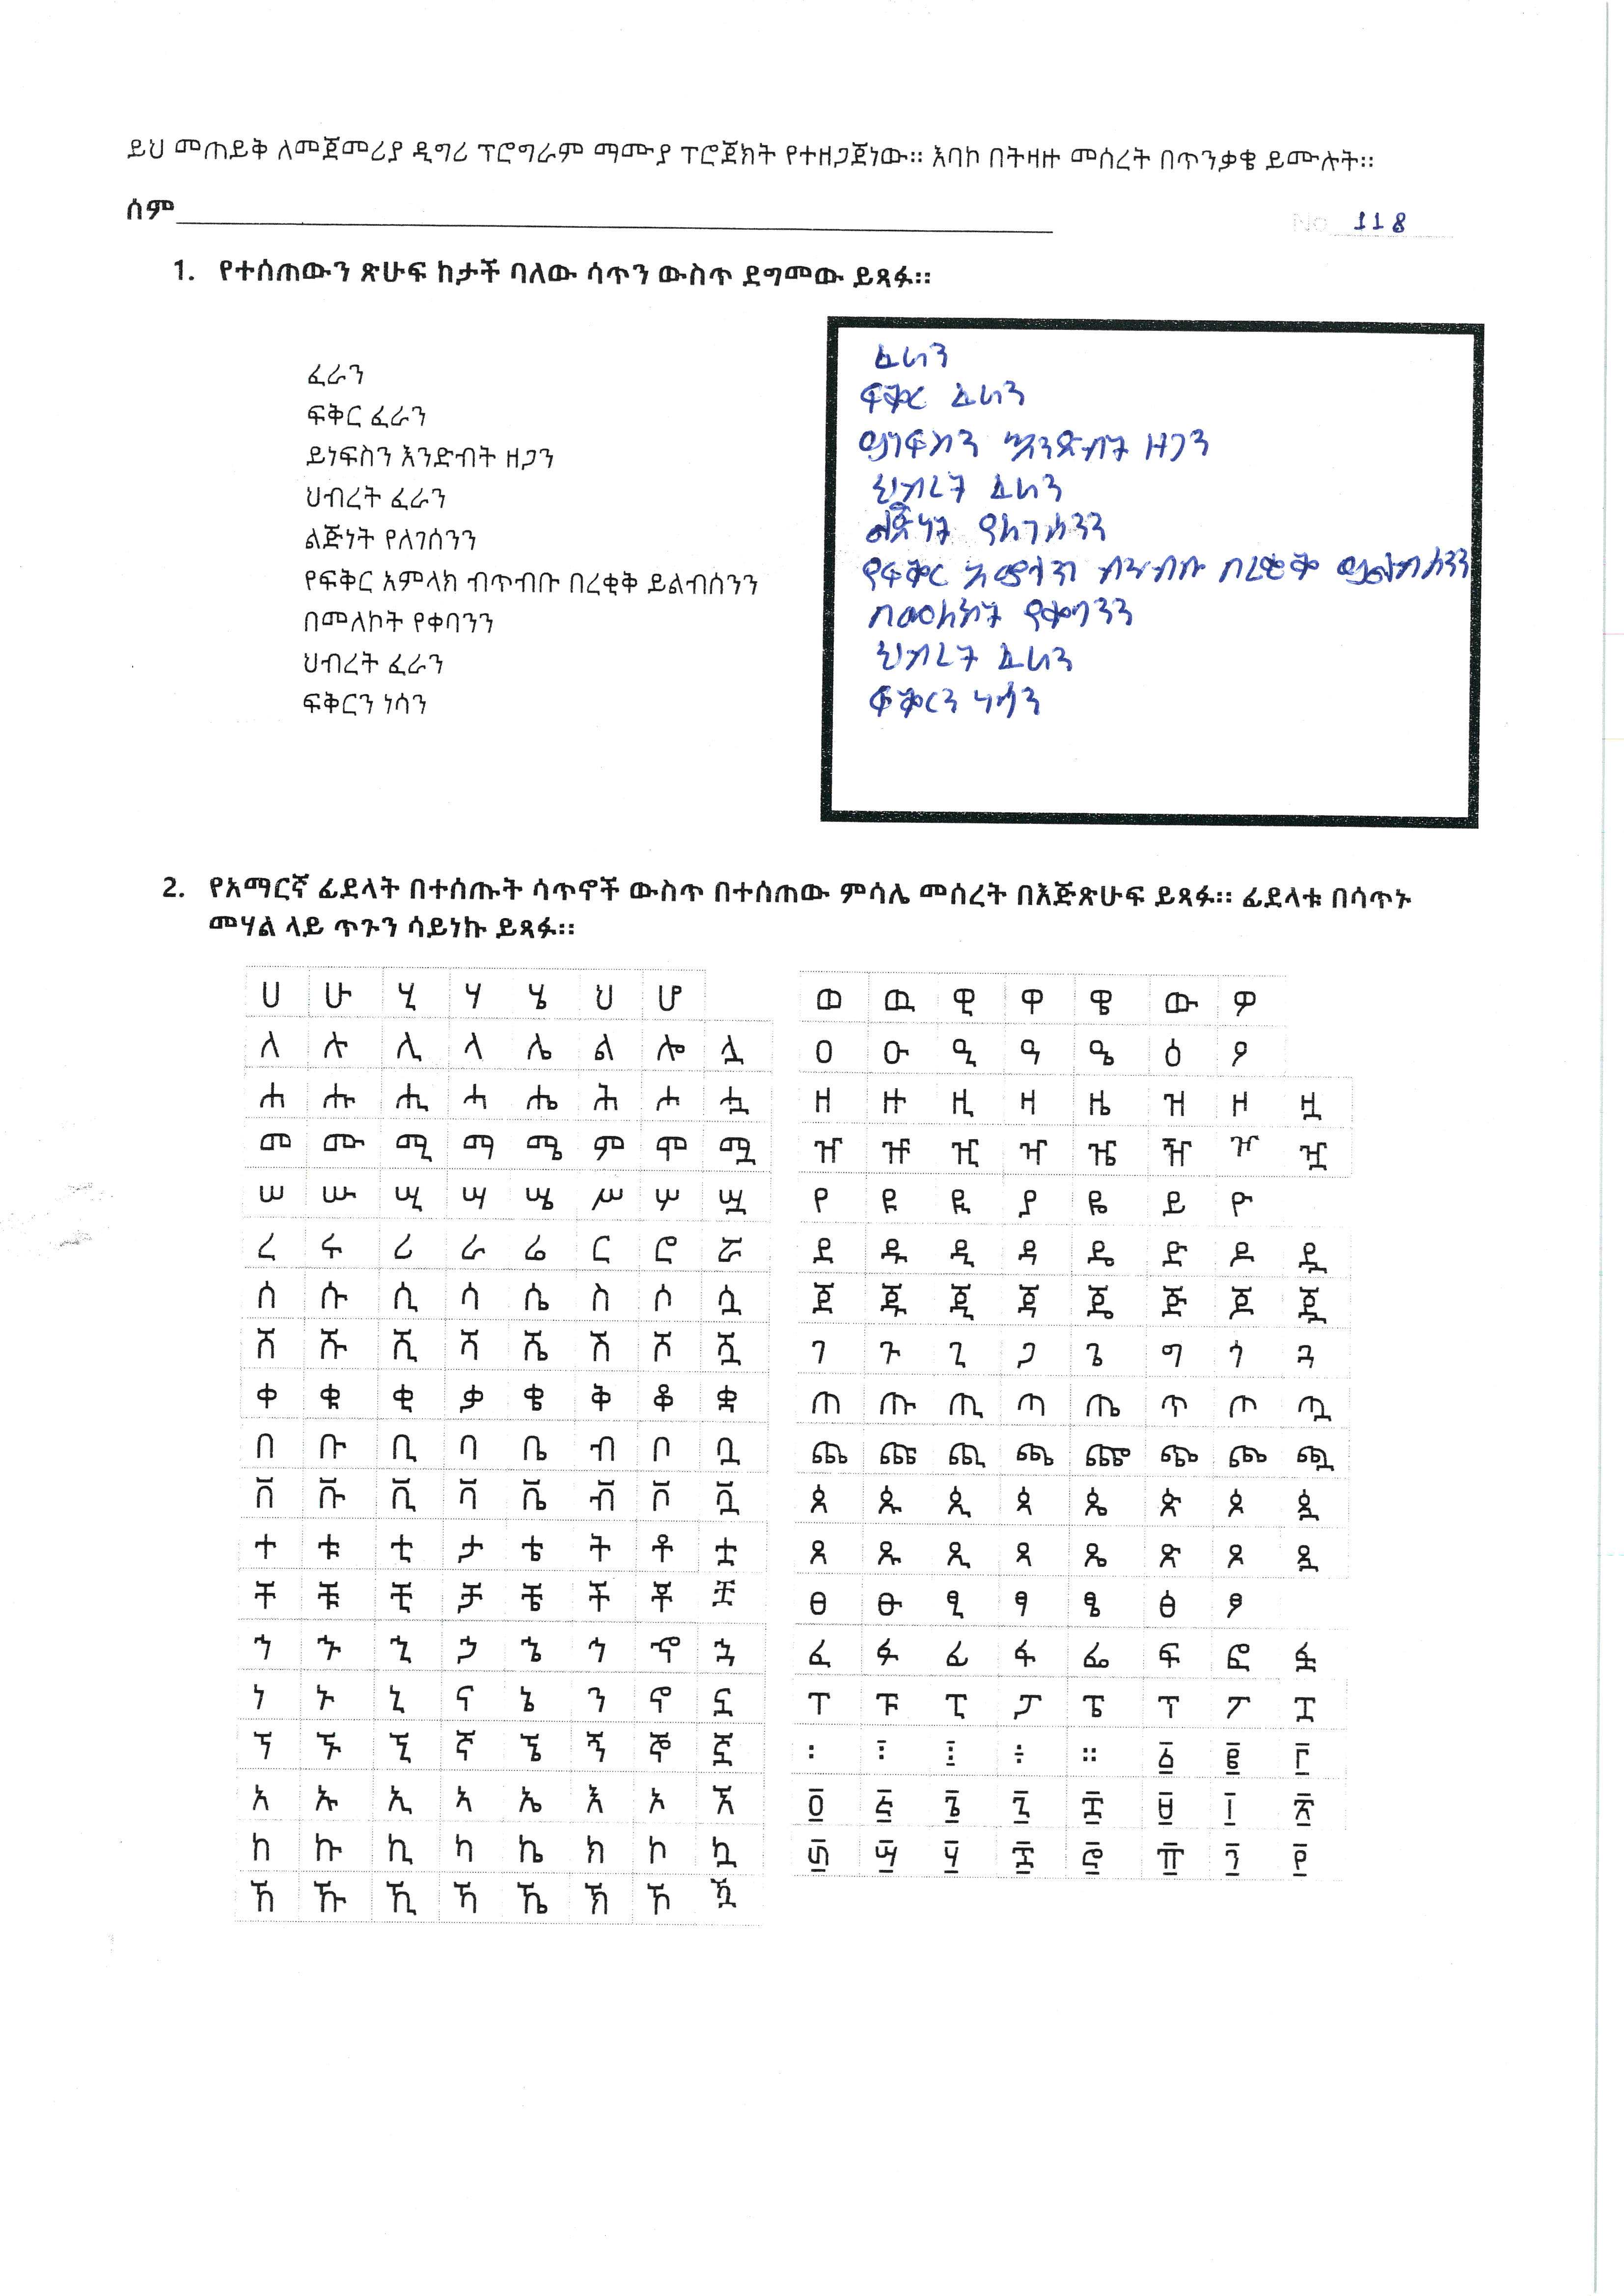 ይህ መጠይቅ ለመጀመሪያ ዲግሪ ፕሮግራም ማሙያ ፕሮጀክት የተዘጋጀነው። እባኮ በትዛዙ መሰረት በጥንቃቄ ይሙሉት።
ስም
No 118
1. የተሰጠውን ጽሁፍ ከታች ባለው ሳጥን ውስጥ ደግመው ይጻፉ።
ፈራን
ፍቅር ፈራን
ይነፍስን እንድብት ዘጋን
ህብረት ፈራን
ልጅነት የለገሰንን
የፍቅር አምላክ ብጥብቡ በረቂቅ ይልብሰንን
በመለኮት የቀባንን
ህብረት ፈራን
ፍቅርን ነሳን
ፈራን
ፍቅር ፈራን
ይነፍስን እንድብት ዘጋን
ህብረት ፈራን
ልጅነት የለገሰንን
የፍቅር አምላክ ብጥብቡ በረቂቅ ይልብሰንን
በመለኮት የቀባንን
ህብረት ፈራን
ፍቅርን ነሳን
2. የአማርኛ ፊደላት በተሰጡት ሳጥኖች ውስጥ በተሰጠው ምሳሌ መሰረት በእጅጽሁፍ ይጻፉ። ፊደላቱ በሳጥኑ
መሃል ላይ ጥጉን ሳይነኩ ይጻፉ።
ሀ ሁ ሂ ሃ ሄ ህ ሆ
ለ ሉ ሊ ላ ሌ ል ሎ ሏ
ሐ ሑ ሒ ሓ ሔ ሕ ሖ ሗ
መ ሙ ሚ ማ ሜ ም ሞ ሟ
ሠ ሡ ሢ ሣ ሤ ሥ ሦ ሧ
ረ ሩ ሪ ራ ሬ ር ሮ ሯ
ሰ ሱ ሲ ሳ ሴ ስ ሶ ሷ
ሸ ሹ ሺ ሻ ሼ ሽ ሾ ሿ
ቀ ቁ ቂ ቃ ቄ ቅ ቆ ቋ
በ ቡ ቢ ባ ቤ ብ ቦ ቧ
ቨ ቩ ቪ ቫ ቬ ቭ ቮ ቯ
ተ ቱ ቲ ታ ቴ ት ቶ ቷ
ቸ ቹ ቺ ቻ ቼ ች ቾ ቿ
ኀ ኁ ኂ ኃ ኄ ኅ ኆ ኋ
ነ ኑ ኒ ና ኔ ን ኖ ኗ
ኘ ኙ ኚ ኛ ኜ ኝ ኞ ኟ
አ ኡ ኢ ኣ ኤ እ ኦ ኧ
ከ ኩ ኪ ካ ኬ ክ ኮ ኳ
ኸ ኹ ኺ ኻ ኼ ኽ ኾ ዃ
ወ ዉ ዊ ዋ ዌ ው ዎ
ዐ ዑ ዒ ዓ ዔ ዕ ዖ
ዘ ዙ ዚ ዛ ዜ ዝ ዞ ዟ
ዠ ዡ ዢ ዣ ዤ ዥ ዦ ዧ
የ ዩ ዪ ያ ዬ ይ ዮ
ደ ዱ ዲ ዳ ዴ ድ ዶ ዷ
ጀ ጁ ጂ ጃ ጄ ጅ ጆ ጇ
ገ ጉ ጊ ጋ ጌ ግ ጎ ጓ
ጠ ጡ ጢ ጣ ጤ ጥ ጦ ጧ
ጨ ጩ ጪ ጫ ጬ ጭ ጮ ጯ
ጰ ጱ ጲ ጳ ጴ ጵ ጶ ጷ
ጸ ጹ ጺ ጻ ጼ ጽ ጾ ጿ
ፀ ፁ ፂ ፃ ፄ ፅ ፆ
ፈ ፉ ፊ ፋ ፌ ፍ ፎ ፏ
ፐ ፑ ፒ ፓ ፔ ፕ ፖ ፗ
፡ ፤ ፧ ፥ ። ፩ ፪ ፫
፬ ፭ ፮ ፯ ፰ ፱ ፲ ፳
፴ ፵ ፶ ፷ ፸ ፹ ፺ ፻